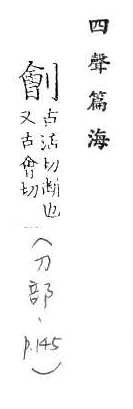 四聲篇海
劊
古活切斷也
又古會切
（刀部、p.145）